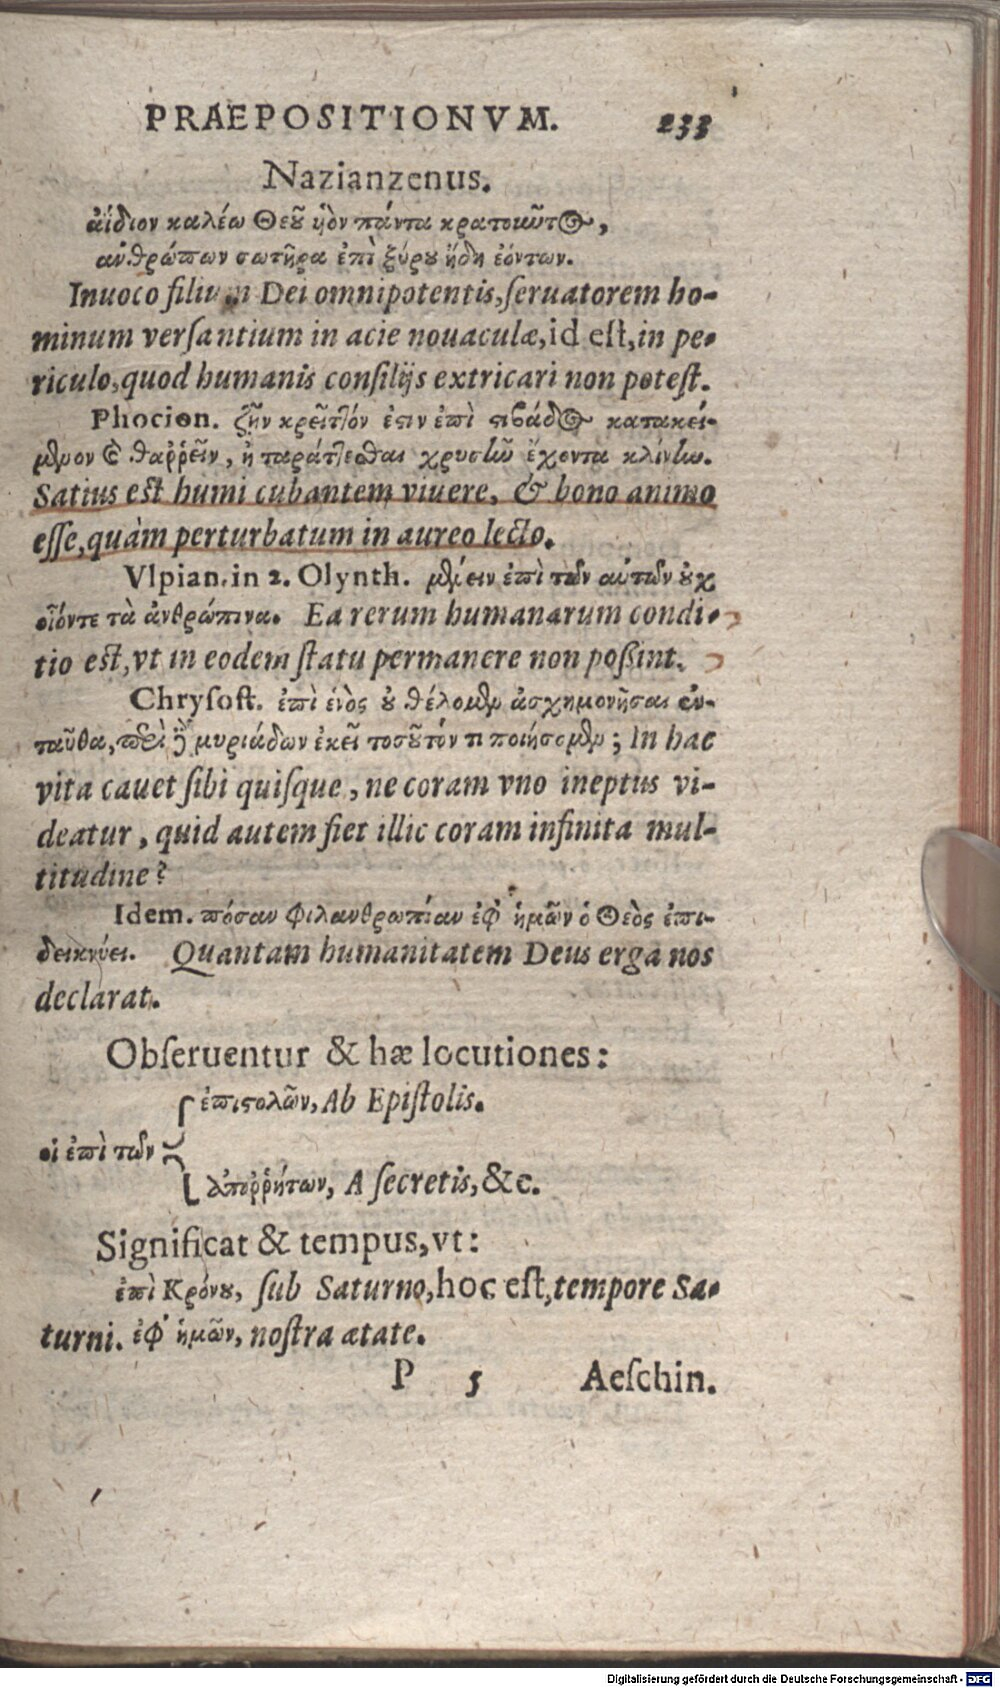 PRAEPOSITIONVM. 233
Nazianzenus.
ἀΐδιον καλέω Θεοῦ ὑὸν πάντα κρατοιῶτος,
ἀνθρώπων σωτῆρα ἐπὶ ξύρου ἤδη ἐόντων.
Inuoco filium Dei omnipotentis, ſeruatorem ho-
minum verſantium in acie nouaculæ, id eſt, in pe-
riculo, quod humanis conſilijs extricari non poteſt.
Phocion. ζῆν κρεῖττόν ἐςιν ἐπὶ ςιβάδος κατακεί-
μενον καὶ θαῤῥεῖν, ἢ ταράττεσθαι χρυσῆν ἔχοντα κλίνην.
Satius eſt humi cubantem viuere, & bono animo
eſſe, quàm perturbatum in aureo lecto.
Vlpian. in 2. Olynth. μένειν ἐπὶ τῶν αὐτῶν οὐχ
οἷόντε τὰ ἀνθρώπινα. Ea rerum humanarum condi-
tio eſt, vt in eodem ſtatu permanere non poßint.
Chryſoſt. ἐπὶ ἑνὸς οὐ θέλομεν ἀσχημονῆσαι ἐν-
ταῦθα, ἐπὶ δὲ μυριάδων ἐκεῖ τοσοῦτόν τι ποιήσομεν; In hac
vita cauet ſibi quiſque, ne coram vno ineptus vi-
deatur, quid autem fiet illic coram infinita mul-
titudine?
Idem. πόσαν φιλανθρωπίαν ἐφ' ἡμῶν ὁ Θεὸς ἐπι-
δεικνύει. Quantam humanitatem Deus erga nos
declarat.
Obſeruentur & hæ locutiones:
ἐπιςολῶν, Ab Epiſtolis.
οἱ ἐπὶ τῶν
ἀποῤῥήτων, A ſecretis, &c.
Significat & tempus, vt:
ἐπὶ Κρόνου, ſub Saturno, hoc eſt, tempore Sa-
turni. ἐφ' ἡμῶν, noſtra ætate.
P 5 Aeſchin.
Digitalisierung gefördert durch die Deutsche Forschungsgemeinschaft - DFG